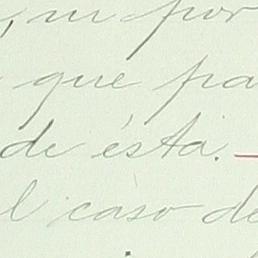 , ni por
que pa
de ésta.—
el caso de